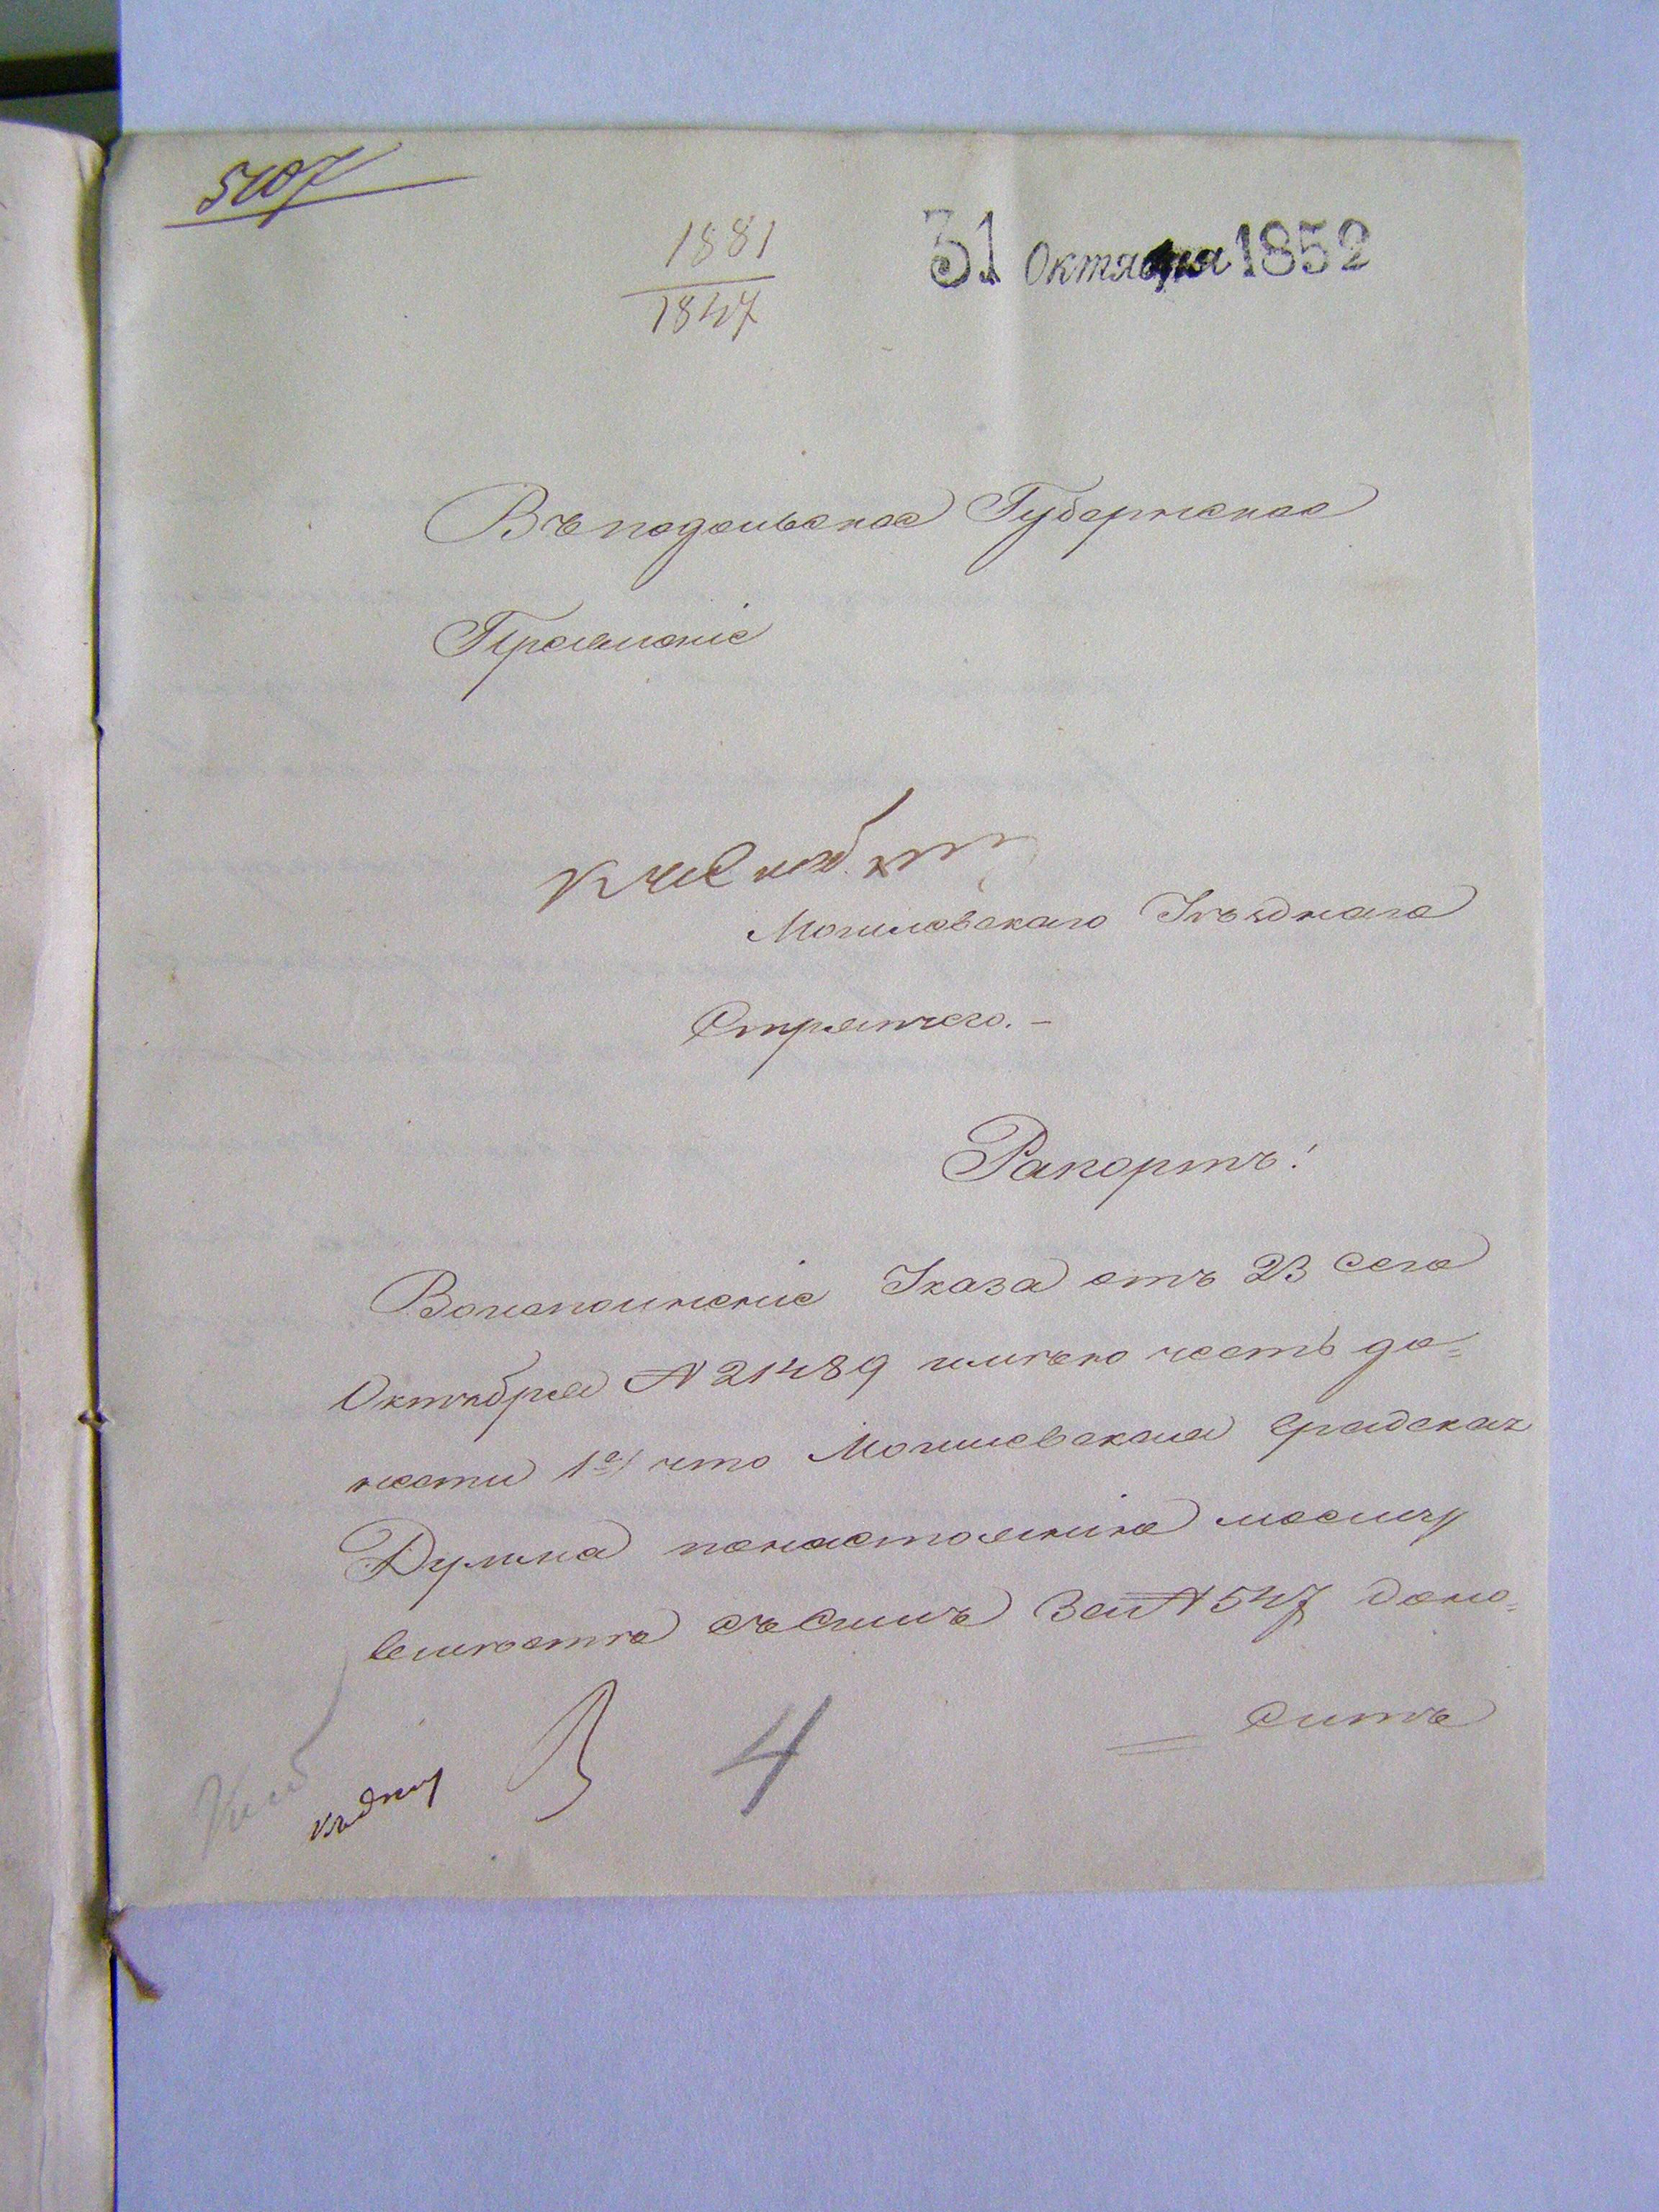 5407
1881
1847
31 Октября 1852
Въ подольское Губернское
Правленіе
Могилевскаго Уѣзднаго
Стряпчего. –
Рапортъ!
Воисполненіе Указа отъ 23 сего
Октября № 21489 имѣю честь до=
нести 1е/ что Могилевская градская
Дума понастоянію моему
вмѣстѣ съ симъ За № 547 доно=
ситъ
4